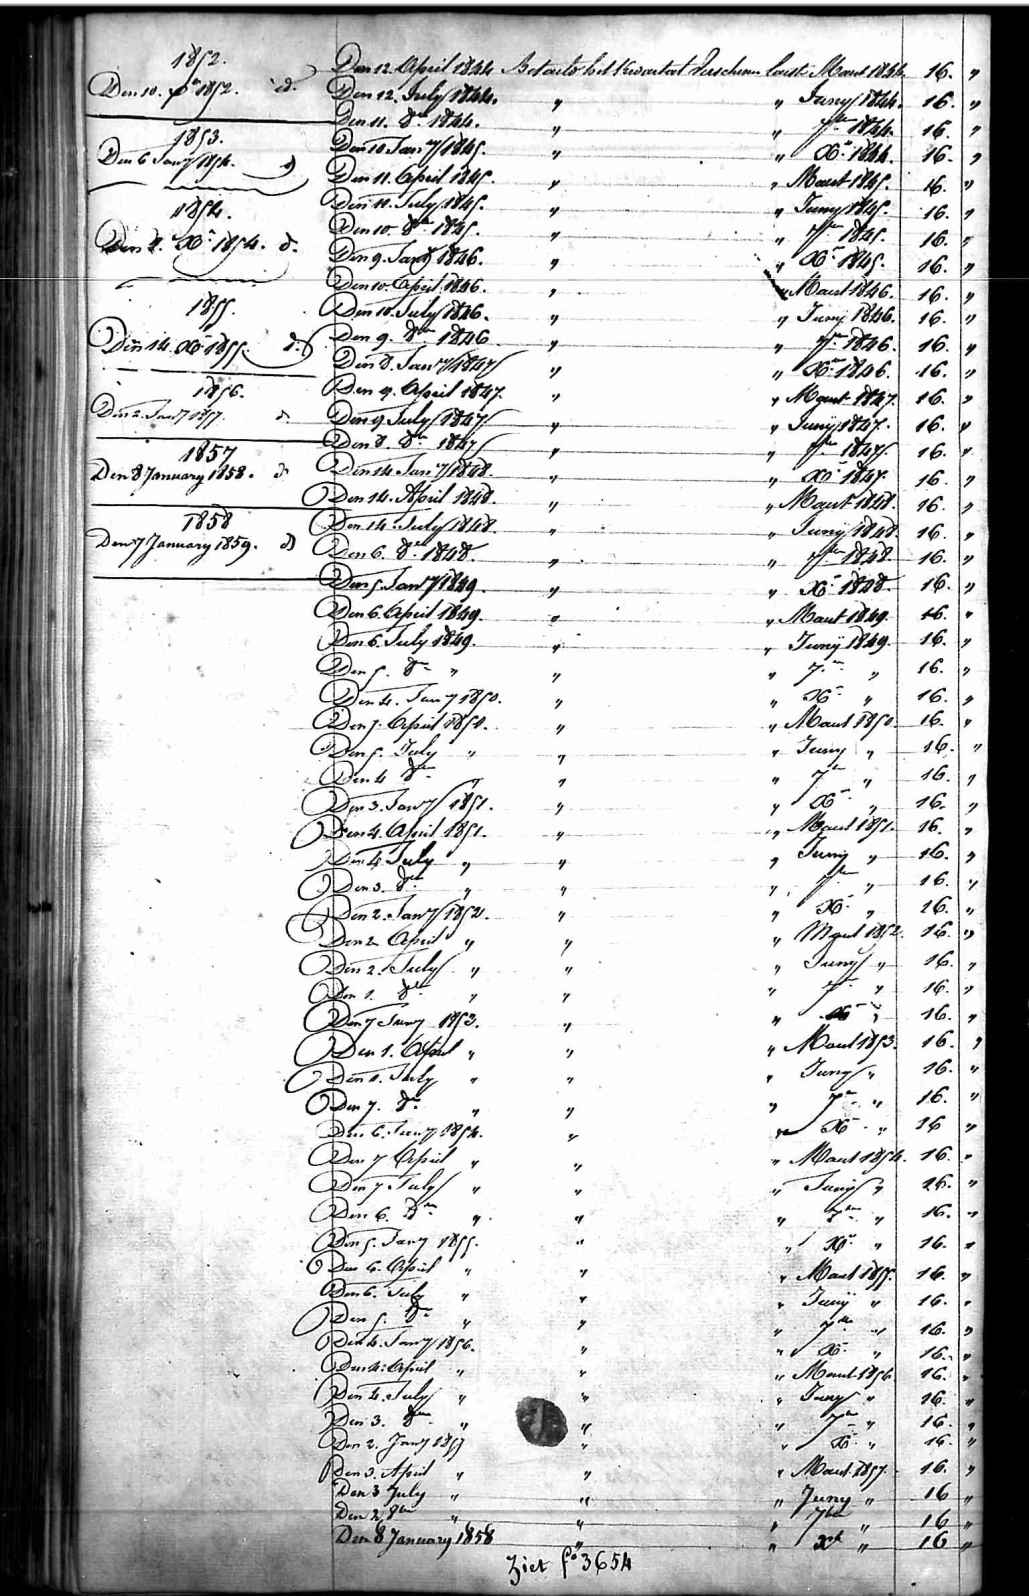 1852.
Den 10. 1852. d.
1853.
Den 6 Jan7 1854. d
1854.
Den 2. Xb 1854. d.
1855.
Den 14. Xb 1855. d.
1856.
Den 2. Jan7 1857. d
1857
Den 8 January 1858. d
1858
Den 7 January 1859. d
Den 12. April 1844 Betaald het Kwartaal Verschenen laatst. Maart 1844. 16. "
Den 12. July 1844. " " Juny 1844. 16. "
Den 11. 8br 1844. " " 7br 1844. 16. "
Den 10 Jan7 1845. " " Xb 1844. 16. "
Den 11. April 1845. " " Maart 1845. 16. "
Den 11. July 1845. " " Juny 1845. 16. "
Den 10. 8br 1845. " " 7br 1845. 16. "
Den 9. Jan7 1846. " " Xb 1845. 16. "
Den 10. April 1846. " " Maart 1846. 16. "
Den 10. July 1846. " " Juny 1846. 16. "
Den 9. 8br 1846. " " 7br 1846. 16. "
Den 8. Jan7 1847 " " Xb 1846. 16. "
Den 9. April 1847. " " Maart 1847. 16. "
Den 9 July 1847 " " Juny 1847. 16. "
Den 8. 8br 1847 " " 7br 1847. 16. "
Den 14 Jan7 1848. " " Xb 1847. 16. "
Den 14. April 1848. " " Maart 1848. 16. "
Den 14. July 1848. " " Juny 1848. 16. "
Den 6. 8br 1848. " " 7br 1848. 16. "
Den 5. Jan7 1849. " " Xb 1848. 16. "
Den 6. April 1849. " " Maart 1849. 16. "
Den 6. July 1849. " " Juny 1849. 16. "
Den 5. 8br " " " 7br " 16. "
Den 4. Jan7 1850. " " Xb " 16. "
Den 5. April 1850. " " Maart 1850. 16. "
Den 5. July " " " Juny " 16. "
Den 4 8br " " " 7br " 16. "
Den 3. Jan7 1851. " " Xb " 16. "
Den 4. April 1851. " " Maart 1851. 16. "
Den 4. July " " " Juny " 16. "
Den 3. 8br " " " 7br " 16. "
Den 2. Jan7 1852. " " Xb " 16. "
Den 2 April " " " Maart 1852. 16. "
Den 2. July " " " Juny " 16. "
Den 1. 8br " " " 7br " 16. "
Den 7 Jan7 1853. " " Xb " 16. "
Den 1. April " " " Maart 1853. 16. "
Den 1. July " " " Juny " 16. "
Den 7. 8br " " " 7br " 16. "
Den 6. Jan7 1854. " " Xb " 16 "
Den 7 April " " " Maart 1854. 16. "
Den 7 July " " " Juny " 16. "
Den 6. 8br " " " 7br " 16. "
Den 5. Jan7 1855. " " Xb " 16. "
Den 6. April " " " Maart 1855. 16. "
Den 6. July " " " Juny " 16. "
Den 5. 8br " " " 7br " 16. "
Den 4. Jan7 1856. " " Xb " 16. "
Den 4. April " " " Maart 1856 16. "
Den 4. July " " " Juny " 16. "
Den 3. 8br " " " 7br " 16. "
Den 2. Jan7 1857 " " Xb " 16. "
Den 3. April " " " Maart 1857. 16. "
Den 3 July " " " Juny " 16 "
Den 2 8br " " " 7br " 16 "
Den 8 January 1858 " " Xb " 16 "
Ziet fo 3654